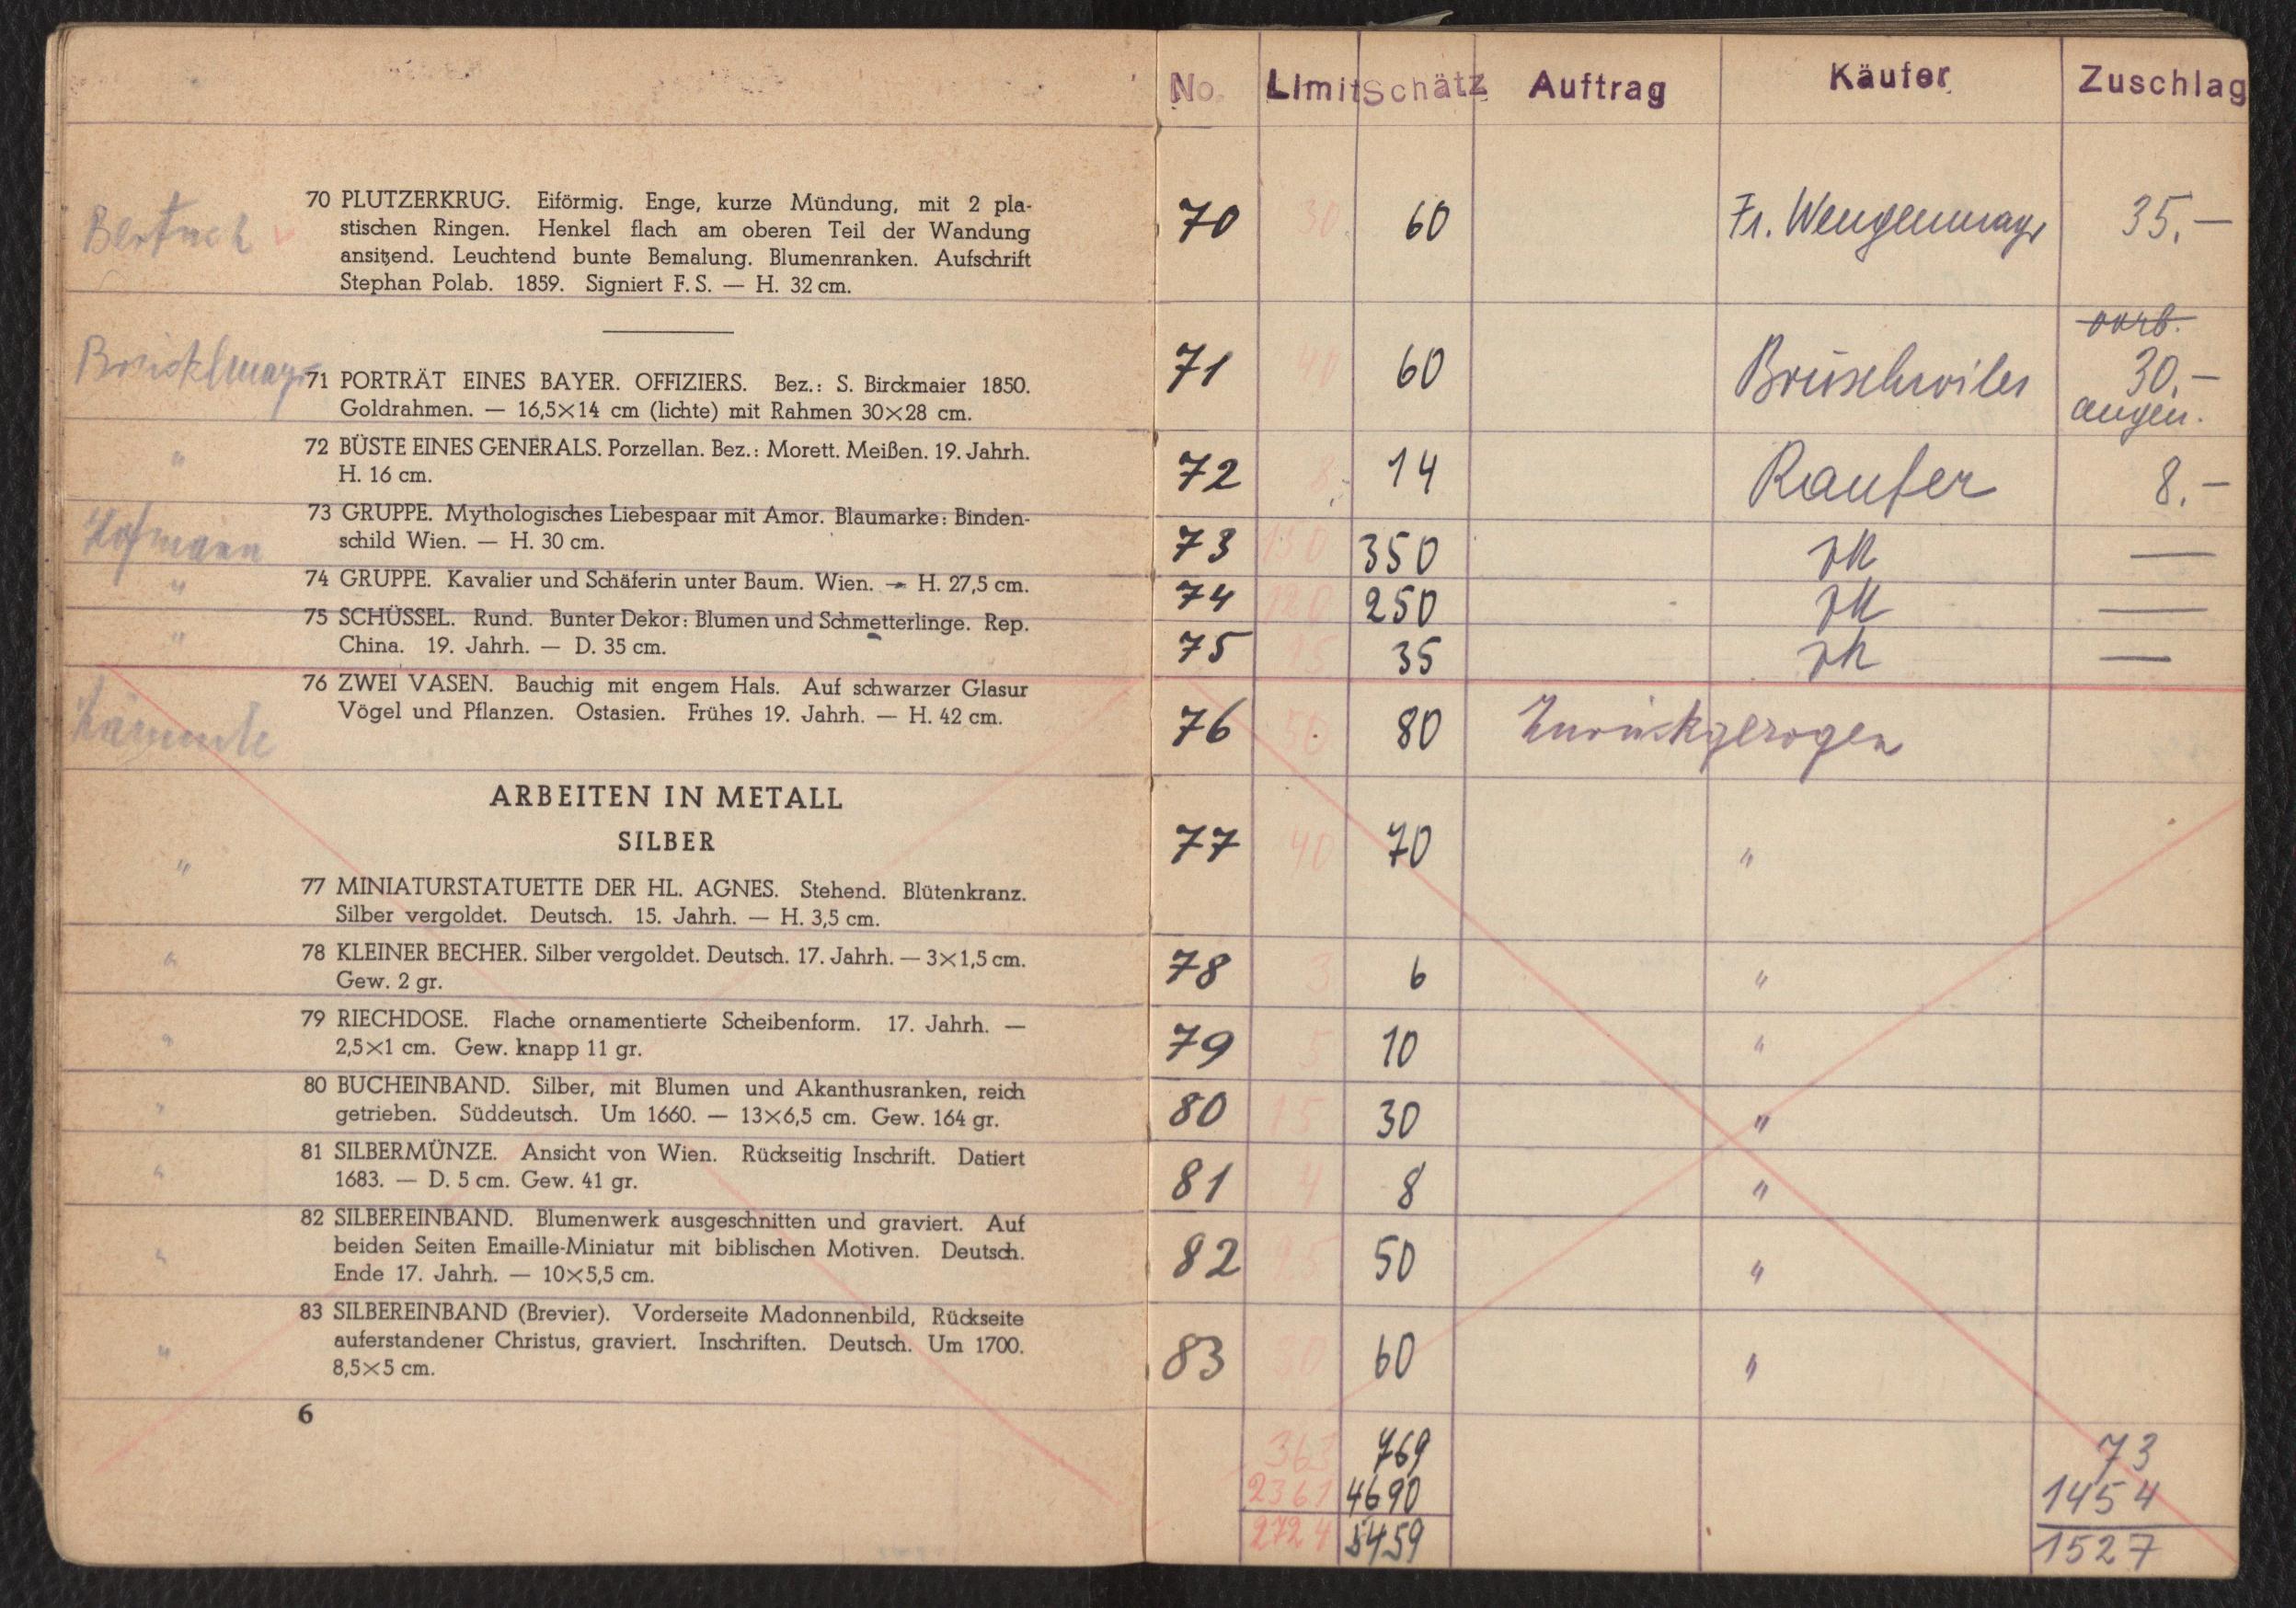 Brücklmayr
"
Hofmann
"
"
"
"
"
"
"
"
"
70 PLUTZERKRUG. Eiförmig. Enge, kurze Mündung, mit 2 pla-
stischen Ringen. Henkel flach am oberen Teil der Wandung
ansitzend. Leuchtend bunte Bemalung. Blumenranken. Aufschrift
Stephan Polab. 1859. Signiert F. S. — H. 32 cm.
71 PORTRÄT EINES BAYER. OFFIZIERS. Bez.: S. Birckmaier 1850.
Goldrahmen. — 16,5×14 cm (lichte) mit Rahmen 30×28 cm.
72 BÜSTE EINES GENERALS. Porzellan. Bez.: Morett. Meißen. 19. Jahrh.
H. 16 cm.
73 GRUPPE. Mythologisches Liebespaar mit Amor. Blaumarke: Binden-
schild Wien. — H. 30 cm.
74 GRUPPE. Kavalier und Schäferin unter Baum. Wien. — H. 27,5 cm.
75 SCHÜSSEL. Rund. Bunter Dekor: Blumen und Schmetterlinge. Rep.
China. 19. Jahrh. — D. 35 cm.
76 ZWEI VASEN. Bauchig mit engem Hals. Auf schwarzer Glasur
Vögel und Pflanzen. Ostasien. Frühes 19. Jahrh. — H. 42 cm.
ARBEITEN IN METALL
SILBER
77 MINIATURSTATUETTE DER HL. AGNES. Stehend. Blütenkranz.
Silber vergoldet. Deutsch. 15. Jahrh. — H. 3,5 cm.
78 KLEINER BECHER. Silber vergoldet. Deutsch. 17. Jahrh. — 3×1,5 cm.
Gew. 2 gr.
79 RIECHDOSE. Flache ornamentierte Scheibenform. 17. Jahrh. —
2,5×1 cm. Gew. knapp 11 gr.
80 BUCHEINBAND. Silber, mit Blumen und Akanthusranken, reich
getrieben. Süddeutsch. Um 1660. — 13×6,5 cm. Gew. 164 gr.
81 SILBERMÜNZE. Ansicht von Wien. Rückseitig Inschrift. Datiert
1683. — D. 5 cm. Gew. 41 gr.
82 SILBEREINBAND. Blumenwerk ausgeschnitten und graviert. Auf
beiden Seiten Emaille-Miniatur mit biblischen Motiven. Deutsch.
Ende 17. Jahrh. — 10×5,5 cm.
83 SILBEREINBAND (Brevier). Vorderseite Madonnenbild, Rückseite
auferstandener Christus, graviert. Inschriften. Deutsch. Um 1700.
8,5×5 cm.
6
No. Limit Schätz Auftrag Käufer Zuschlag
70 30. 60 Fr. Wengenmayr 35.—
vorb.
71 40 60 Brüschwiler 30.—
angen.
72 8.- 14 Raufer 8.—
73 150 350 —
74 120 250 —
75 15 35 —
76 50 80 Zurückgezogen
77 40 70 "
78 3 6 "
79 5 10 "
80 15 30 "
81 4 8 "
82 50 "
83 30 60 "
363 769 73
2361 4690 1454
2724 5459 1527